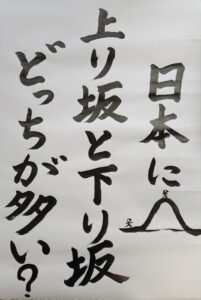 日本に
上り坂と下り坂
どっちが多い？